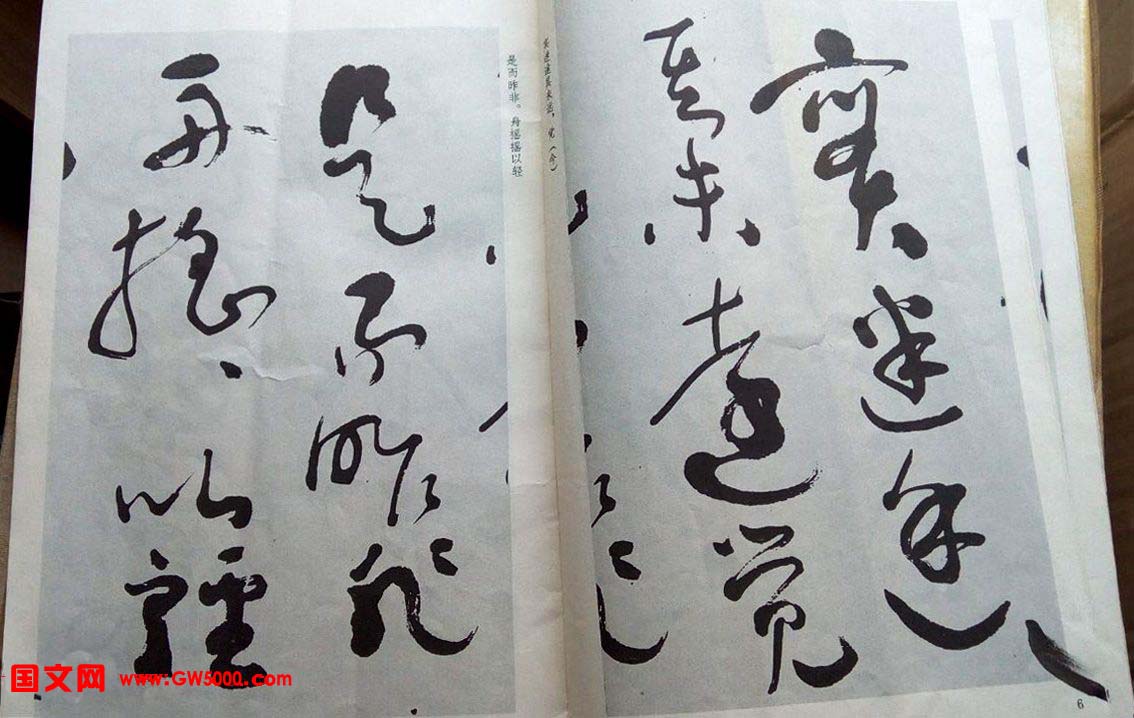 實迷途
其未遠覺
实迷途其未远,觉(今)
6
是而昨非。舟摇摇以轻
是而昨非
舟搖〻以輕
国文网 www.GW5000.com